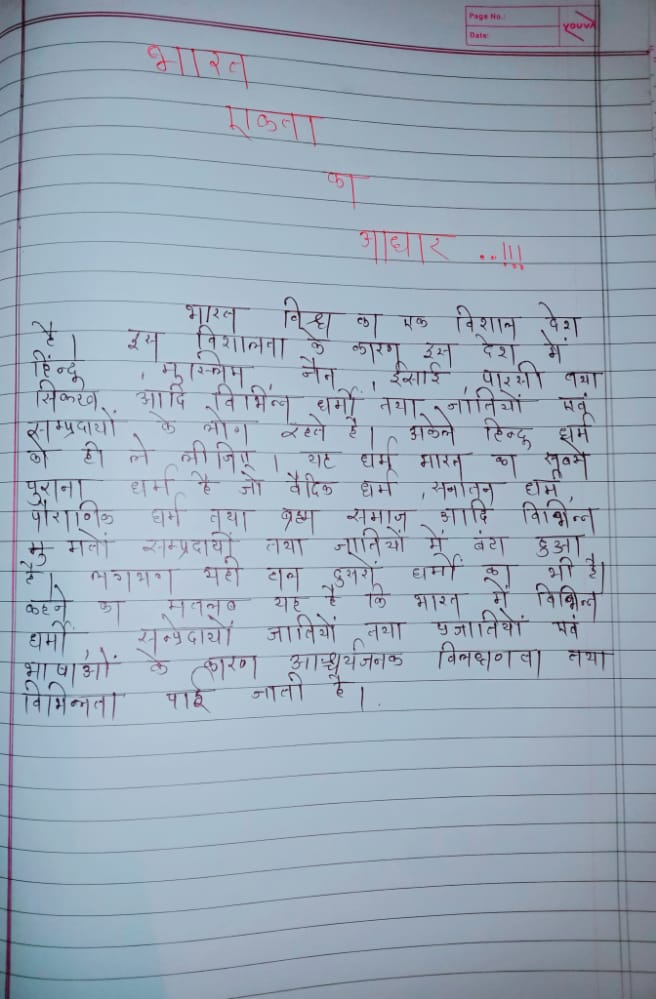 Page No.:
Date:
YOUVA
भारत
एकता
का
आधार ..!!!
भारत विश्व का एक विशाल देश
है। इस विशालता के कारण इस देश में
हिन्दू, मुस्लिम जैन, ईसाई, पारसी तथा
सिक्ख आदि विभिन्न धर्मो तथा जातियों एवं
सम्प्रदायों के लोग रहते है। अकेले हिन्दू धर्म
को ही ले लीजिए। यह धर्म भारत का सबसे
पुराना धर्म है जो वैदिक धर्म, सनातन धर्म,
पौराणिक धर्म तथा ब्रह्म समाज आदि विभिन्न
मतों सम्प्रदायों तथा जातियों में बंटा हुआ
है। लगभग यही हाल दुसरों धर्मो का भी है।
कहने का मतलब यह है कि भारत में विभिन्न
धर्मो, सम्प्रेदायों जातियों तथा प्रजातियों एवं
भाषाओं के कारण आश्चर्यजनक विलक्षणता तथा
विभिन्नता पाई जाती है।